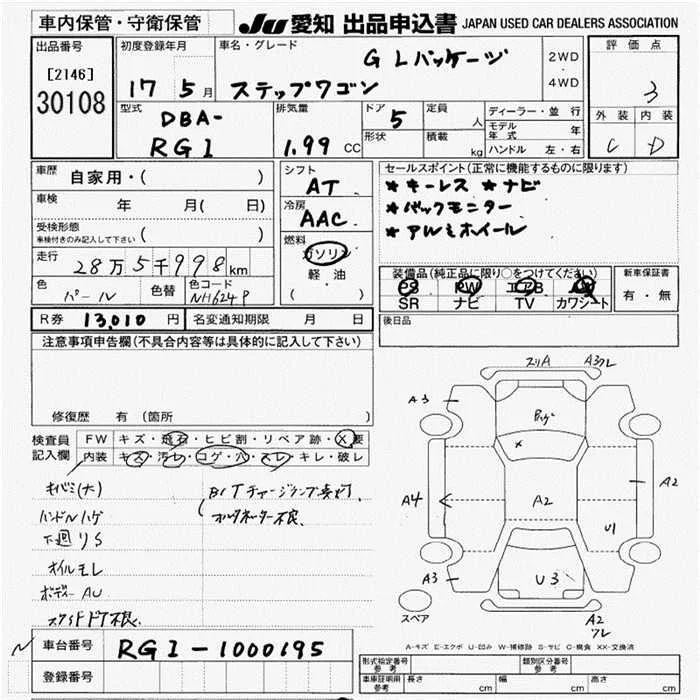 車内保管・守衛保管
JU 愛知 出品申込書 JAPAN USED CAR DEALERS ASSOCIATION
出品番号
[2146]
30108
初度登録年月
17 5月
車名・グレード
GLパッケージ
ステップワゴン
2WD
・
4WD
評価点
3
外装 内装
C D
型式
DBA-
RG1
排気量
1.99 CC
ドア 5
形状
定員 人
積載 kg
ディーラー・並行
モデル年式 年
ハンドル 左・右
車歴 自家用・( )
車検 年 月( 日)
受検形態
車検付きのみ記入して下さい ( )
走行 28万5千998km
色 パール
色替
色コード NH624P
シフト
AT
冷房
AAC
燃料
ガソリン
軽油
( )
セールスポイント(正常に機能するものに限ります)
★キーレス ★ナビ
★バックモニター
★アルミホイール
装備品(純正品に限り○をつけてください)
PS PW エアB AW
SR ナビ TV カワシート
新車保証書
有・無
後日品
R券 13,010円 名変通知期限 月 日
注意事項申告欄(不具合内容等は具体的に記入して下さい)
修復歴 有 (箇所 )
検査員
記入欄
FW キズ・飛石・ヒビ割・リペア跡・X要
内装 キズ・汚レ・コゲ・穴・スレ・キレ・破レ
ハンドルハゲ
下廻りS
オイルモレ
ボディーAU
オルタネーター不良
スリA A3ワレ
A3
A4
A3
A2
A2
U1
U3
A2
ワレ
スペア
A-キズ E-エクボ U-凹み W-補修跡 S-サビ C-腐食 XX-交換済
N
車台番号 RG1-1000195
登録番号
形式指定番号
参考
類別区分番号
参考
車庫証明用
参考
長さ cm 幅 cm 高さ cm